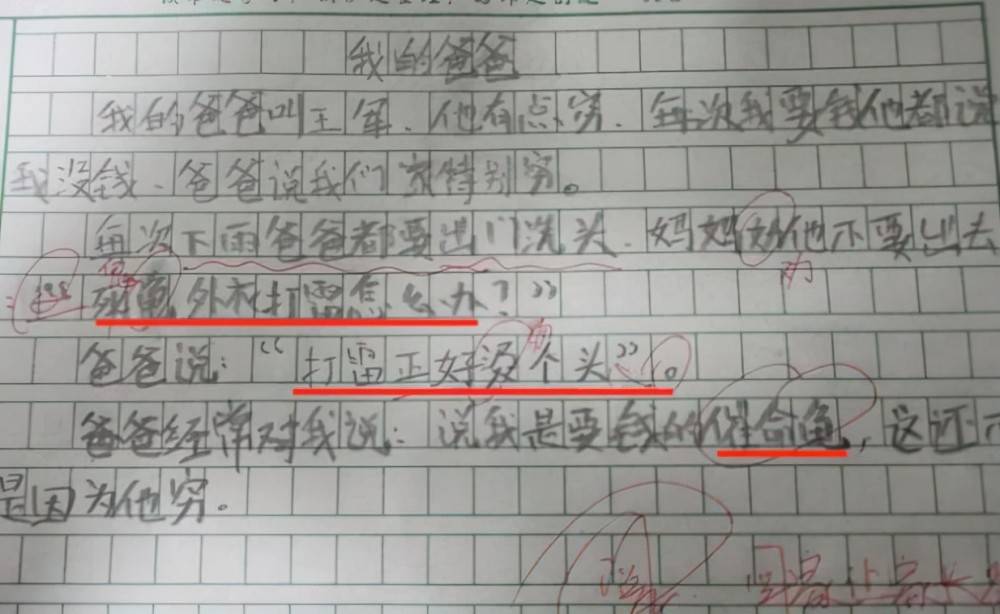 我的爸爸
我的爸爸叫王军.他有点穷.每次我要钱他都说
我没钱、爸爸说我们家特别穷。
每次下雨爸爸都要出门洗头.妈妈 他不要出去
外 打雷怎么办？”
爸爸说：“打雷正好烫个头”。
爸爸经常对我说：说我是要钱的催命鬼，这还不
是因为他穷。